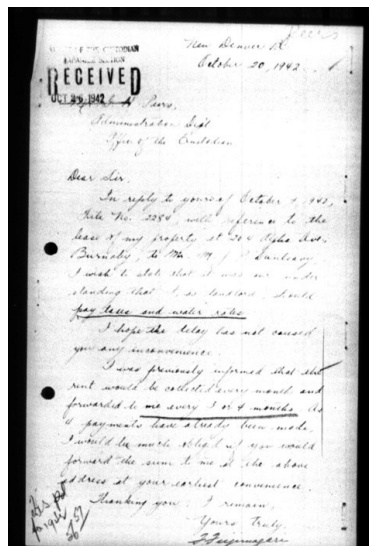 Peers
OFFICE OF THE CUSTODIAN
RECEIVED
OCT 26 1942
New Denver B.C.
October 20, 1942
Peers,
Administration Dept
Office of the Custodian
Dear Sir.
In reply to yours of October 9, 1942,
File No. 2284 with reference to the
lease of my property at 204 Alpha Ave.
Burnaby, to Mr. M. J.
I wish to state that it was our under
standing that I, as landlord, should
pay taxes and water rates
I hope the delay has not caused
you any inconvenience.
I was previously informed that the
rent would be collected every month and
forwarded to me every 3 or 4 months. As
4 payments have already been made.
I would be much obliged if you would
forward the sum to me at the above
address at your earliest convenience.
Thanking you I remain,
Yours truly.